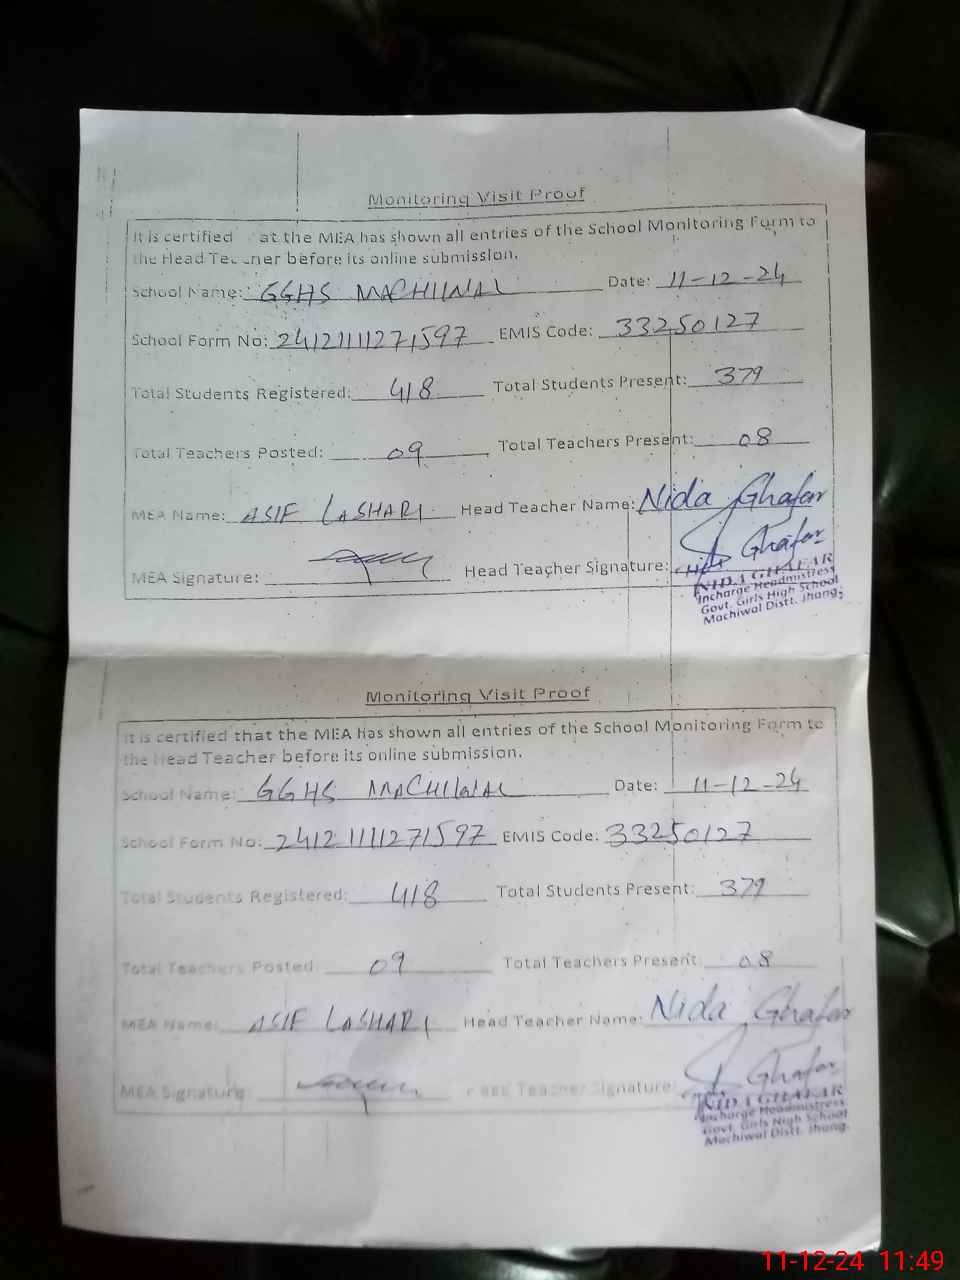 Monitoring Visit Proof
It is certified at the MEA has shown all entries of the School Monitoring Form to
the Head Teacher before its online submission.
School Name: GGHS MACHIWAL Date: 11-12-24
School Form No: 24121111271597 EMIS Code: 33250127
Total Students Registered: 418 Total Students Present: 379
Total Teachers Posted: 09 Total Teachers Present: 08
MEA Name: ASIF LASHARI Head Teacher Name: Nida Ghafar
MEA Signature: Head Teacher Signature: Ghafar
NIDA GHAFAR
Incharge Headmistress
Govt. Girls High School
Machiwal Distt. Jhang.
Monitoring Visit Proof
It is certified that the MEA has shown all entries of the School Monitoring Form to
the Head Teacher before its online submission.
School Name: GGHS MACHIWAL Date: 11-12-24
School Form No: 24121111271597 EMIS Code: 33250127
Total Students Registered: 418 Total Students Present: 379
Total Teachers Posted: 09 Total Teachers Present: 08
MEA Name: ASIF LASHARI Head Teacher Name: Nida Ghafar
MEA Signature: Head Teacher Signature: Ghafar
NIDA GHAFAR
Incharge Headmistress
Govt. Girls High School
Machiwal Distt. Jhang.
11-12-24 11:49